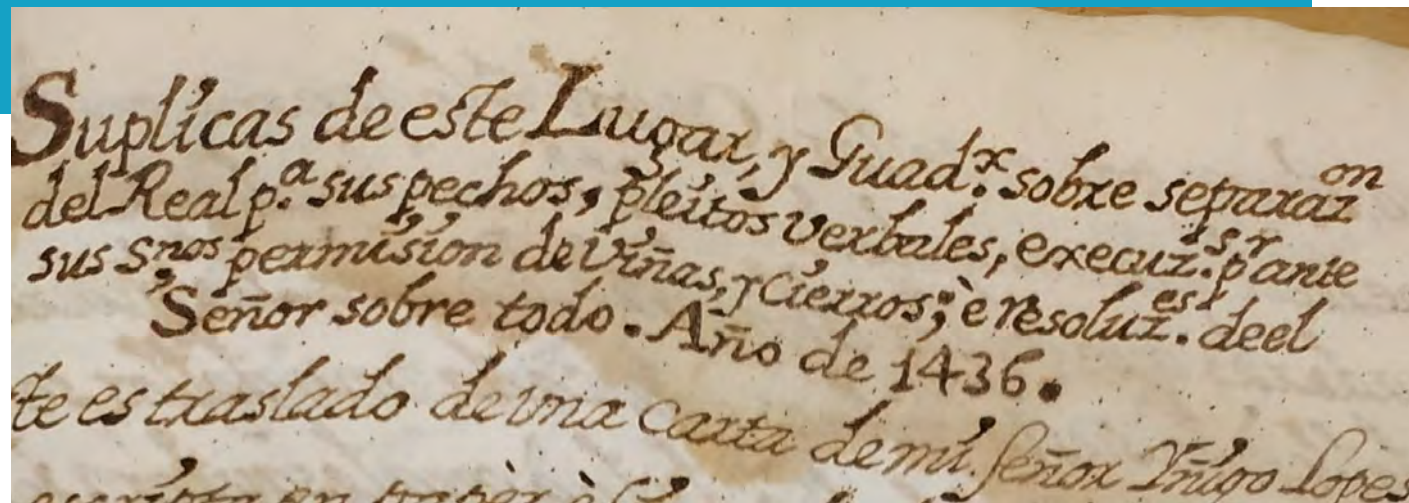 Suplicas de este Lugar, y Guad.x sobre separazon
del Real p.a sus pechos, pleitos verbales, execuz.s pr ante
sus Snos permision de viñas, y cierros; è resoluz.es deel
Señor sobre todo. Año de 1436.
te es traslado de una carta de mi señor Yñigo Lopes